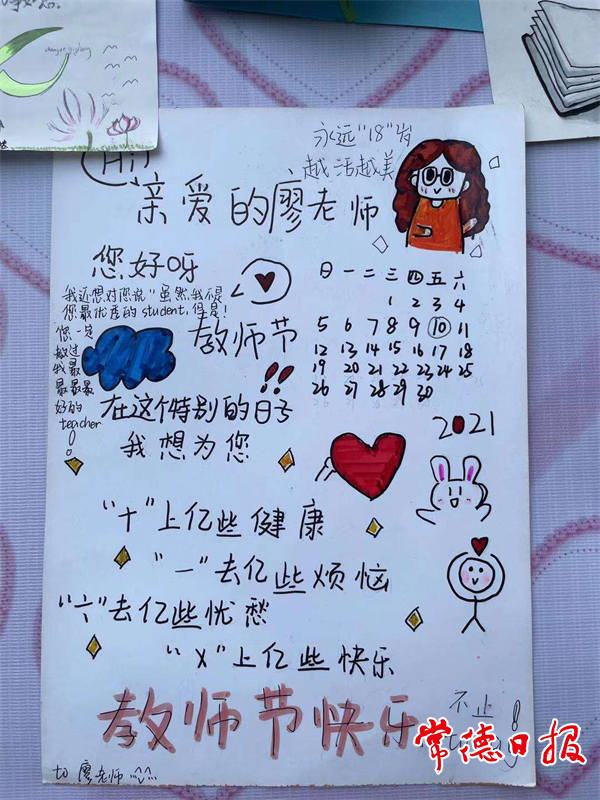 Hi!
永远"18"岁
越活越美
亲爱的廖老师
您好呀
我还想对您说"虽然我不是
您最优秀的student,但是!
您一定
教过
我最
最最最
好的
teacher
!
教师节!!
在这个特别的日子
我想为您
日 一 二 三 四 五 六
1 2 3 4
5 6 7 8 9 10 11
12 13 14 15 16 17 18
19 20 21 22 23 24 25
26 27 28 29 30
2021
"十"上亿些健康
"一"去亿些烦恼
"÷"去亿些忧愁
"x"上亿些快乐
教师节快乐
不止
to 廖老师
常德日报